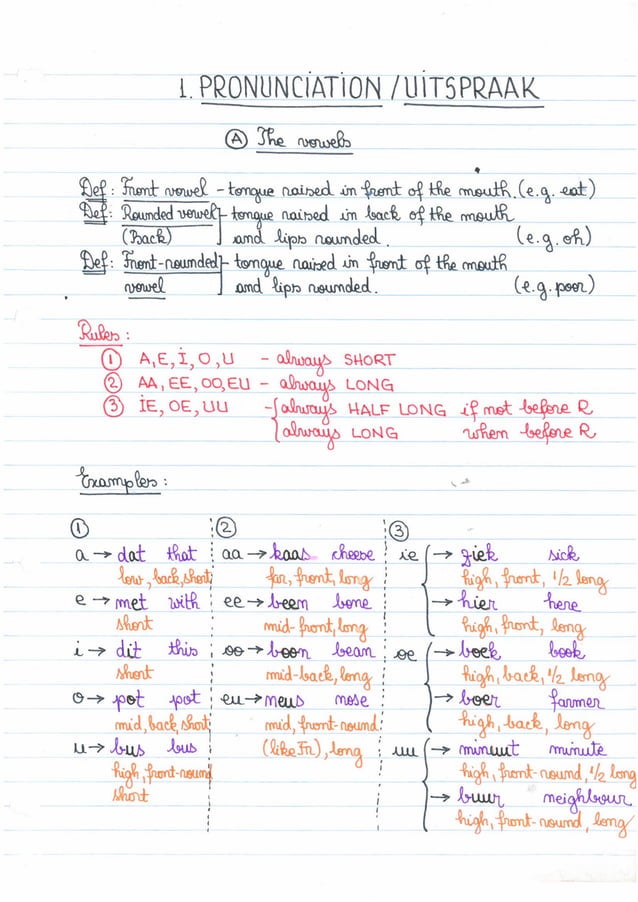 1. PRONUNCIATION / UITSPRAAK
A The vowels
Def: Front vowel - tongue raised in front of the mouth. (e.g. eat)
Def: Rounded vowel - tongue raised in back of the mouth
(Back) and lips rounded. (e.g. oh)
Def: Front-rounded - tongue raised in front of the mouth
vowel and lips rounded. (e.g. poor)
Rules:
1 A, E, I, O, U - always SHORT
2 AA, EE, OO, EU - always LONG
3 IE, OE, UU - always HALF LONG if not before R
always LONG when before R
Examples:
1
a → dat that
low, back, short
e → met with
short
i → dit this
short
o → pot pot
mid, back, short
u → bus bus
high, front-round
short
2
aa → kaas cheese
far, front, long
ee → been bone
mid-front, long
oo → boon bean
mid-back, long
eu → neus nose
mid, front-round
(like Fr), long
3
ie → ziek sick
high, front, 1/2 long
→ hier here
high, front, long
oe → boek book
high, back, 1/2 long
→ boer farmer
high, back, long
uu → minuut minute
high, front-round, 1/2 long
→ buur neighbour
high, front-round, long